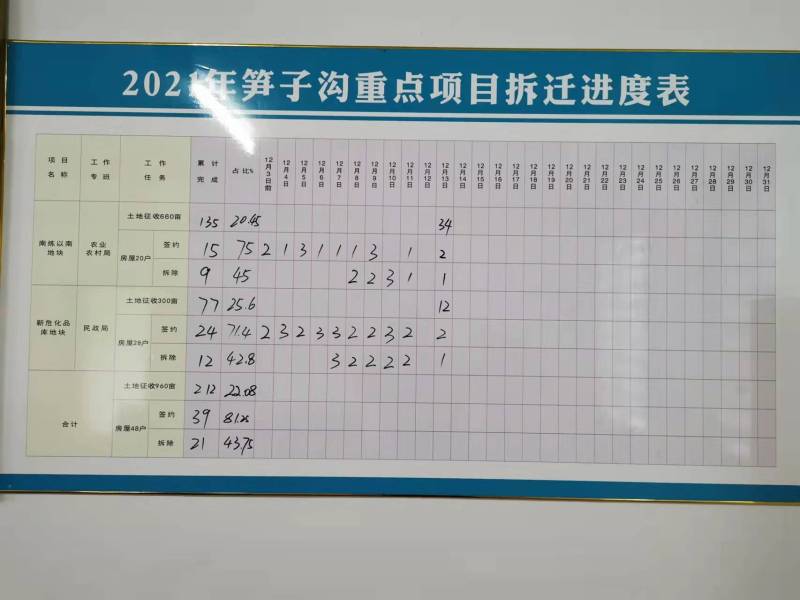 2021年笋子沟重点项目拆迁进度表
项目名称 工作专班 工作任务 累计完成 占比% 12月3日前 12月4日 12月5日 12月6日 12月7日 12月8日 12月9日 12月10日 12月11日 12月12日 12月13日 12月14日 12月15日 12月16日 12月17日 12月18日 12月19日 12月20日 12月21日 12月22日 12月23日 12月24日 12月25日 12月26日 12月27日 12月28日 12月29日 12月30日 12月31日
南炼以南地块 农业农村局 土地征收660亩 135 20.45 34
房屋20户 签约 15 75 2 1 3 1 1 1 3 1 2
拆除 9 45 2 2 3 1 1
新危化品库地块 民政局 土地征收300亩 77 25.6 12
房屋28户 签约 24 71.4 2 3 2 3 3 2 2 3 2 2
拆除 12 42.8 3 2 2 2 2 1
合计 土地征收960亩 212 22.08
房屋48户 签约 39 81.25
拆除 21 43.75